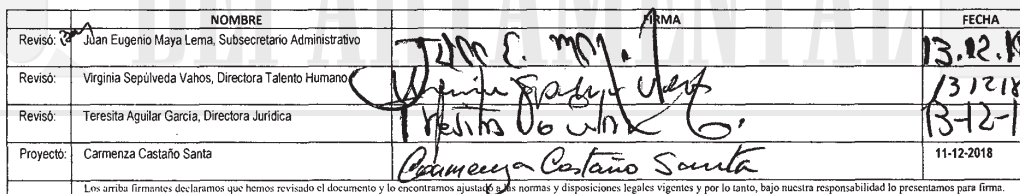 DEPARTAMENTAL
NOMBRE FIRMA FECHA
Revisó: Juan Eugenio Maya Lema, Subsecretario Administrativo Juan E. 13.12.18
Revisó: Virginia Sepúlveda Vahos, Directora Talento Humano Virginia Sepúlveda Vahos 131218
Revisó: Teresita Aguilar García, Directora Jurídica Teresita 13-12-1
Proyectó: Carmenza Castaño Santa Carmenza Castaño Santa 11-12-2018
Los arriba firmantes declaramos que hemos revisado el documento y lo encontramos ajustado a las normas y disposiciones legales vigentes y por lo tanto, bajo nuestra responsabilidad lo presentamos para firma.